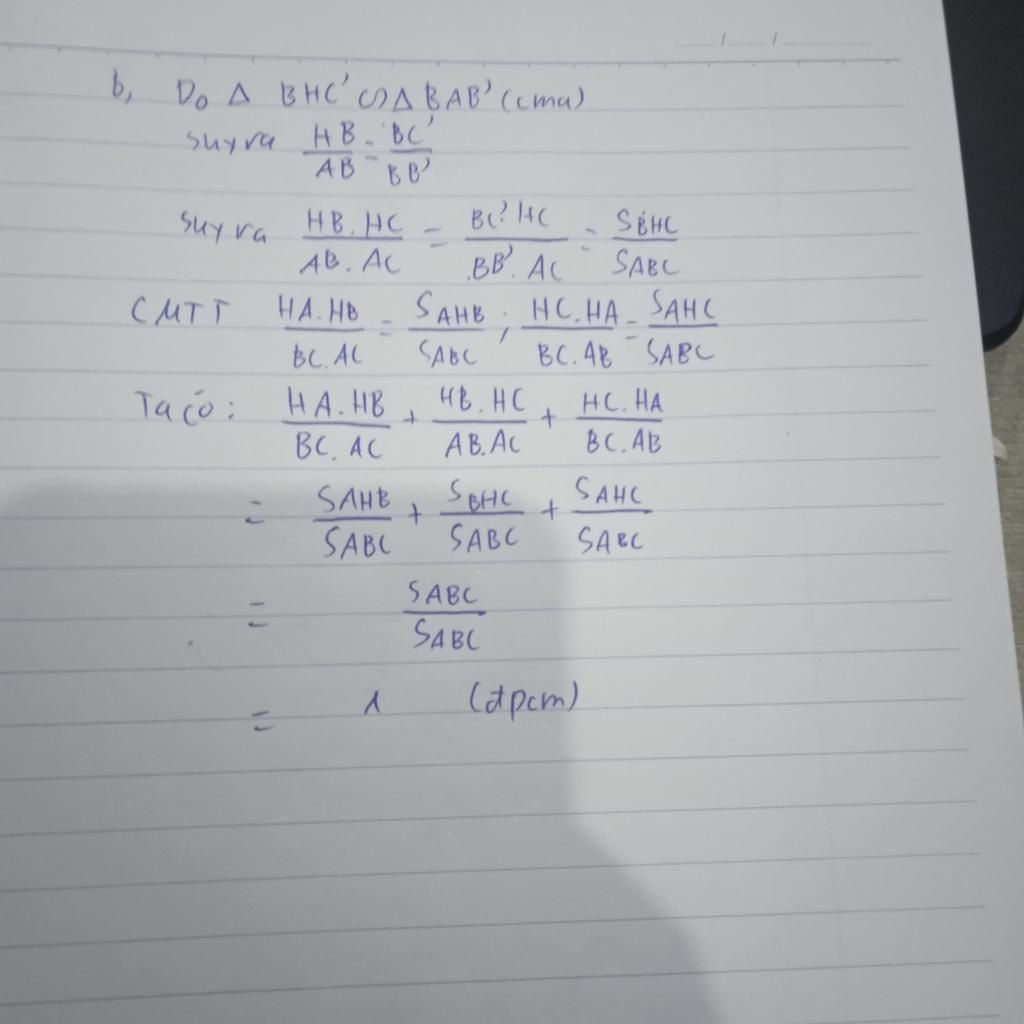 b, Do Δ BHC' ∽ Δ BAB' (cma)
suy ra HB/AB = BC'/BB'
suy ra HB.HC/AB.AC = BC'.HC/BB'.AC = SBHC/SABC
CMTT HA.HB/BC.AC = SAHB/SABC ; HC.HA/BC.AB = SAHC/SABC
Ta có: HA.HB/BC.AC + HB.HC/AB.AC + HC.HA/BC.AB
= SAHB/SABC + SBHC/SABC + SAHC/SABC
= SABC/SABC
= 1 (đpcm)